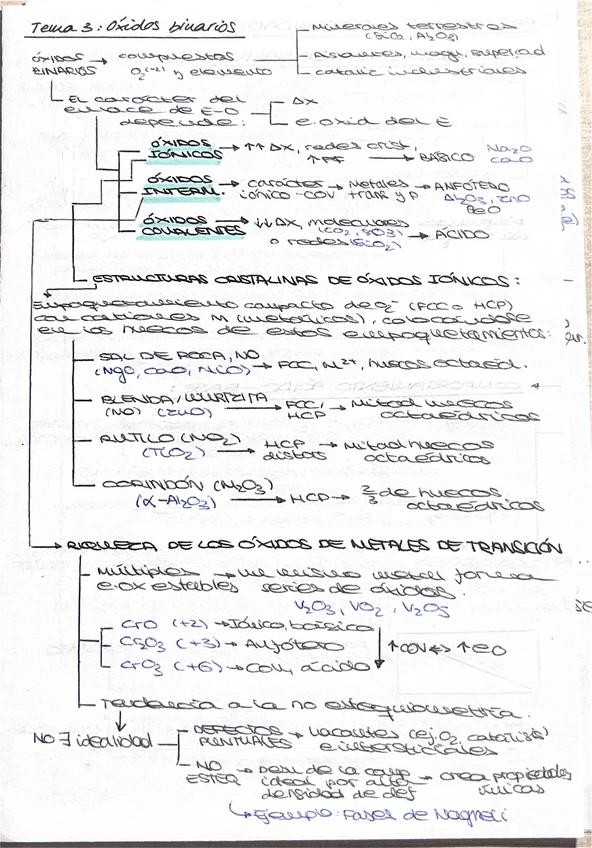 Tema 3: Óxidos binarios
Minerales terrestres
(SiO2, Al2O3)
ÓXIDOS BINARIOS → compuestos O2(-2) y elemento
Aislantes, magn, supercad
cataliz industriales
El carácter del enlace de E-O depende:
Δx
e.oxid del E
ÓXIDOS IÓNICOS → ↑↑Δx, redes crist, ↑PF → BÁSICO Na2O CaO
ÓXIDOS INTERM. → carácter iónico-cov → Metales trans y p → ANFÓTERO Al2O3, ZnO BeO
ÓXIDOS COVALENTES → ↓↓Δx, moleculares (CO2, SO3) o redes (SiO2) → ÁCIDO
ESTRUCTURAS CRISTALINAS DE ÓXIDOS IÓNICOS:
Empaquetamiento compacto de O2- (FCC o HCP)
con cationes M (metálicos), colocándose
en los huecos de estos empaquetamientos:
SAL DE ROCA, MO
(MgO, CaO, NiO) → FCC, M2+, huecos octaéd.
BLENDA/WURTZITA
(MO) (ZnO) → FCC/HCP → Mitad huecos octaédricos
RUTILO (MO2)
(TiO2) → HCP distors → Mitad huecos octaédricos
CORINDÓN (M2O3)
(α-Al2O3) → HCP → 2/3 de huecos octaédricos
RIQUEZA DE LOS ÓXIDOS DE METALES DE TRANSICIÓN
Múltiples e.ox estables → un mismo metal forma series de óxidos.
V2O3, VO2, V2O5
CrO (+2) → Iónico, básico
Cr2O3 (+3) → Anfótero
CrO3 (+6) → Cov, ácido
↑COV ⟷ ↑eo
Tendencia a la no estequiometría.
NO ∃ idealidad
DEFECTOS PUNTUALES → vacantes (ej. O2, catálisis) e intersticiales
NO ESTEQ → Desv de la comp ideal por alta densidad de def → crea propiedades únicas
Ejemplo: Fases de Magnéli